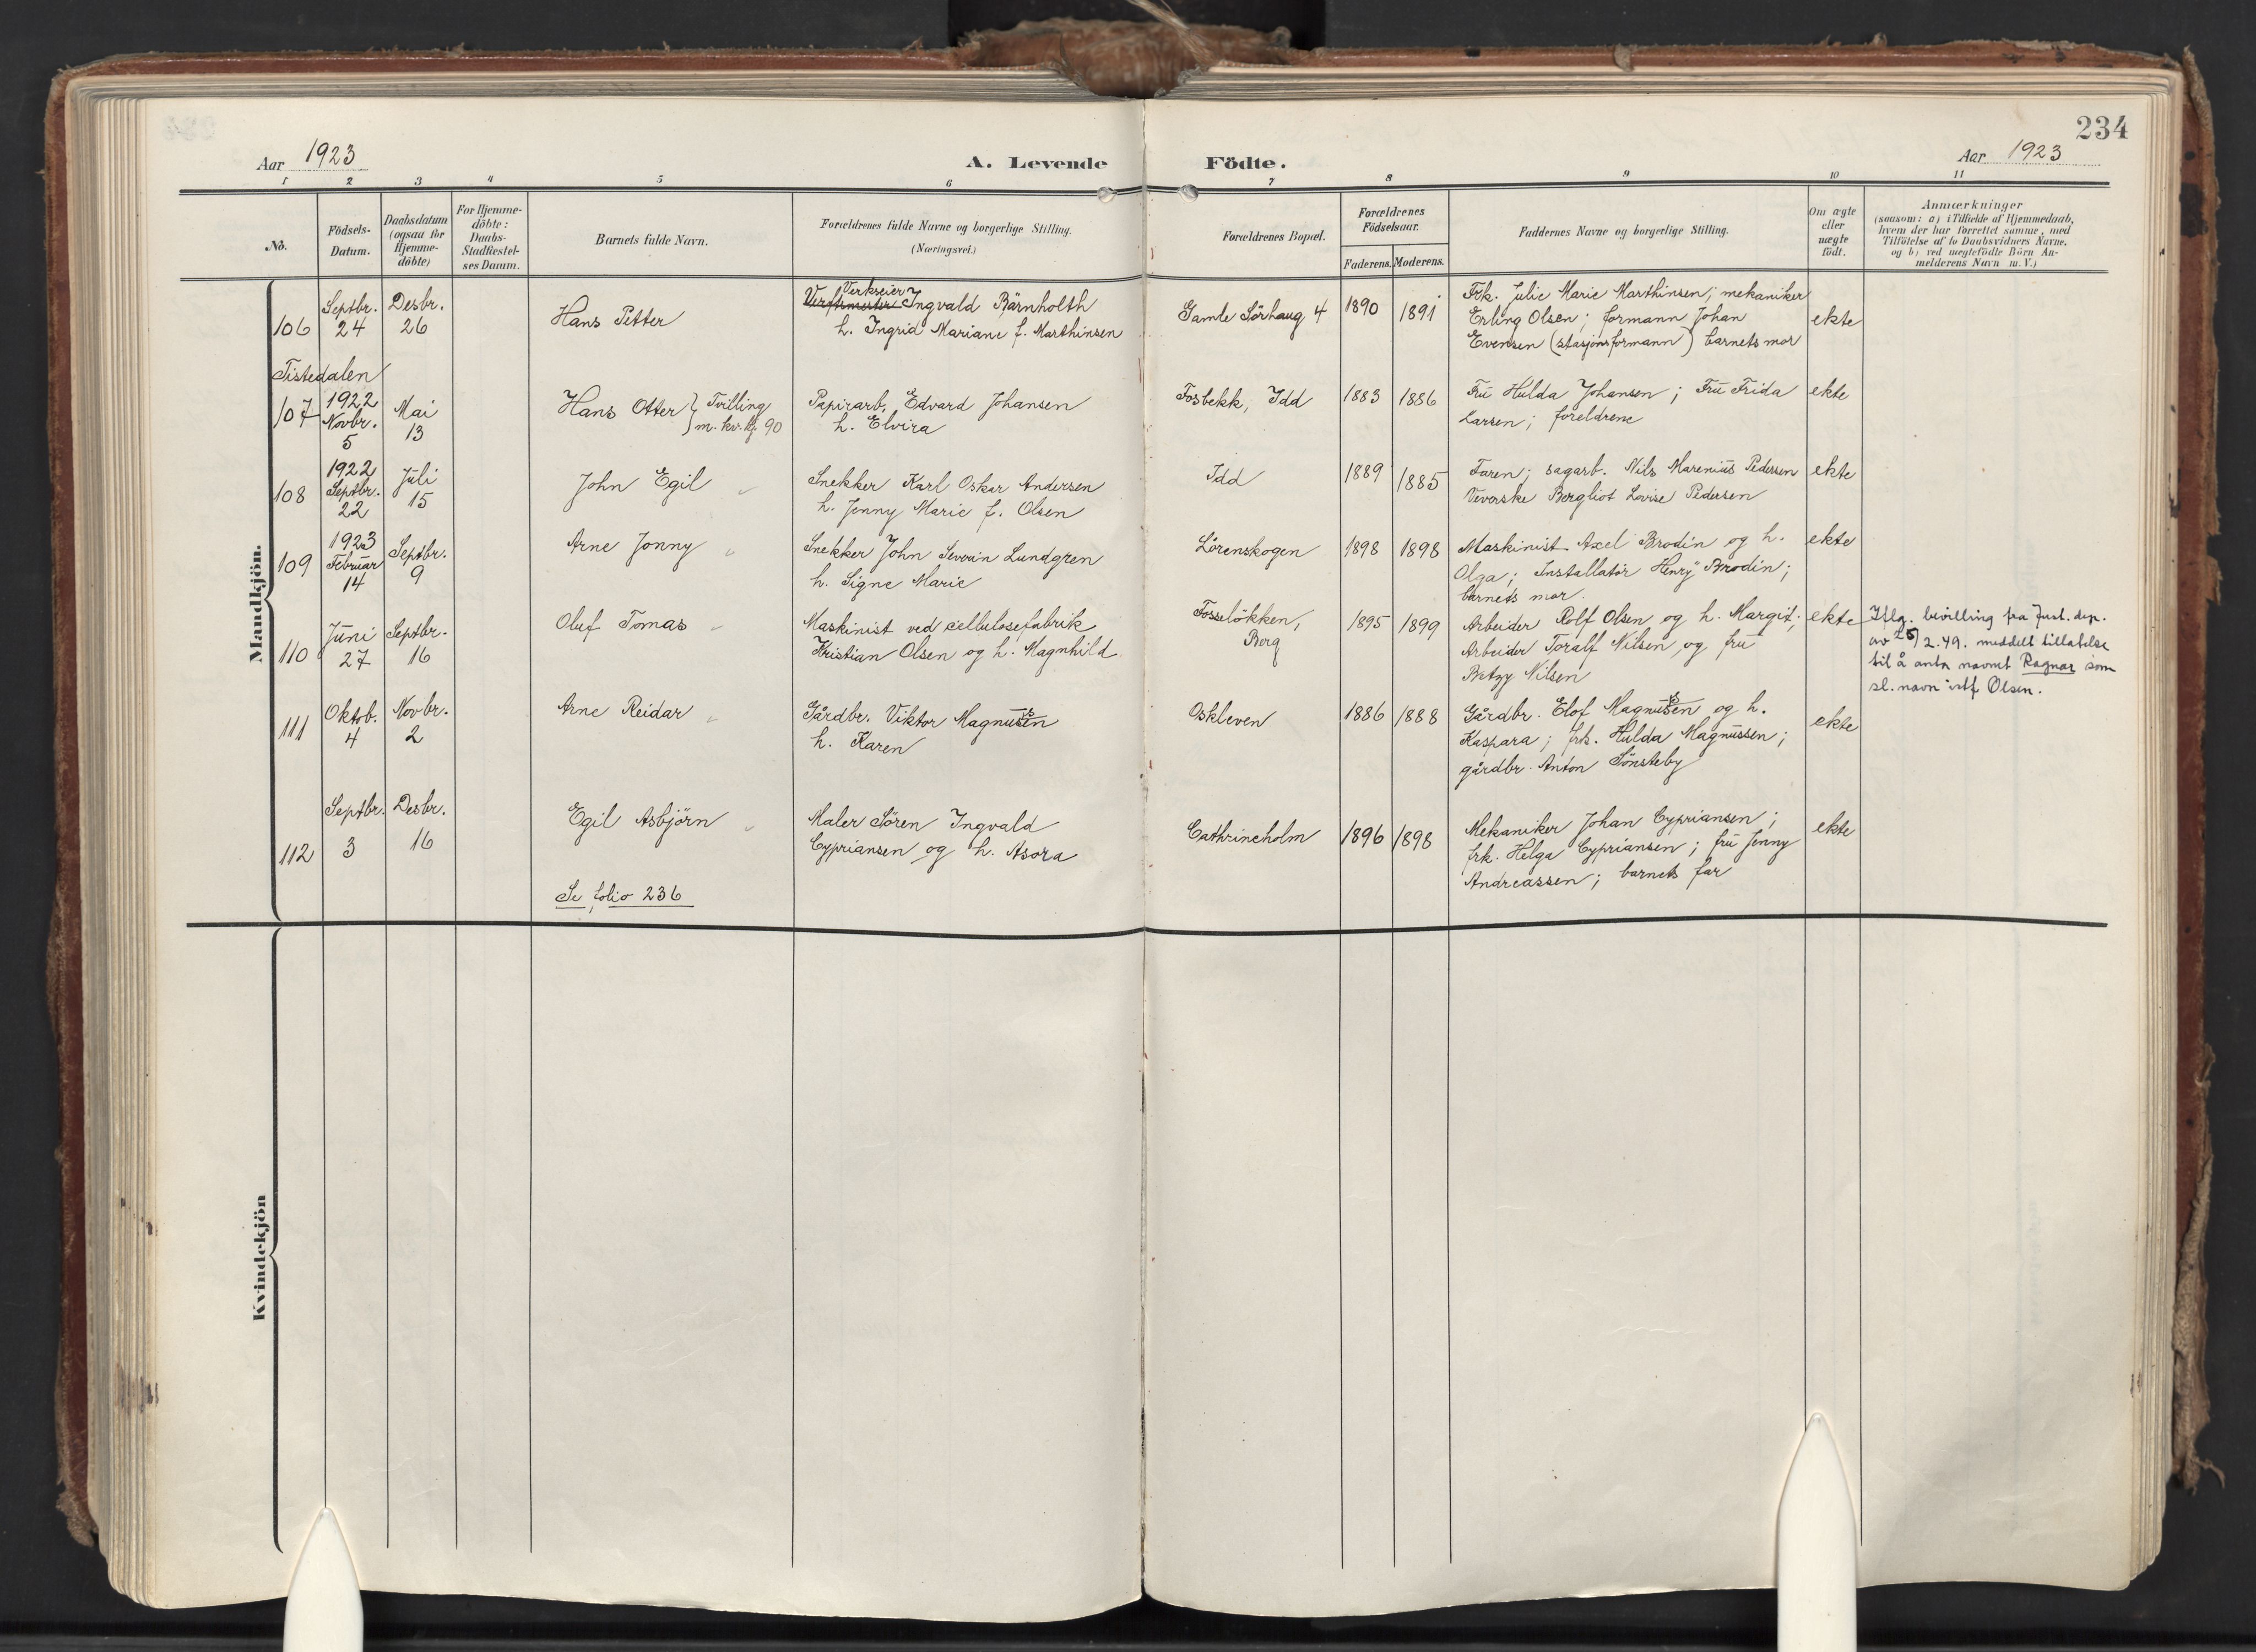 234
Aar 1923
A. Levende Födte.
Aar 1923
1 2 3 4 5 6 7 8 9 10 11
No.
Födsels-
Datum.
Daabsdatum
(ogsaa for
Hjemme-
döbte)
For Hjemme-
döbte:
Daabs-
Stadfæstel-
ses Datum.
Barnets fulde Navn.
Forældrenes fulde Navne og borgerlige Stilling.
(Næringsvei.)
Forældrenes Bopæl.
Forældrenes
Födselsaar.
Faderens. Moderens.
Faddernes Navne og borgerlige Stilling.
Om ægte
eller
uægte
födt.
Anmærkninger
(saasom: a) i Tilfælde af Hjemmedaab,
hvem der har forrettet samme, med
Tilföielse af to Daabsvidners Navne,
og b) ved uegtefödte Börn An-
melderens Navn m. V.)
Mandkjön.
106
Septbr.
24
Desbr.
26
Hans Petter
Verkseier
Ingvald Bärnholth
h. Ingrid Mariane f. Marthinsen
Gamle Sörhaug 4
1890
1891
Frk. Julie Marie Marthinsen; mekaniker
Erling Olsen; formann Johan
Evensen (stasjonsformann) barnets mor
ekte
Tistedalen
107
1922
Novbr.
5
Mai
13
Hans Otter } Tvilling
m. kv. kj. 90
Papirarb. Edvard Johansen
h. Elvira
Fosbekk, Idd
1883
1886
Frú Hulda Johansen; Frú Frida
Larsen; foreldrene
ekte
108
1922
Septbr.
22
Júli
15
John Egil
Snekker Karl Oskar Andersen
h. Jenny Marie f. Olsen
Idd
1889
1885
Faren; sagarb. Nils Marenius Pedersen
Veverske Bergliot Lovise Pedersen
ekte
109
1923
Februar
14
Septbr.
9
Arne Jonny
Snekker John Severin Lundgren
h. Signe Marie
Lörenskogen
1898
1898
Maskinist Axel Brodin og h.
Olga; Installatör Henry Brodin;
barnets mor.
ekte
110
Juni
27
Septbr.
16
Oluf Tomas
Maskinist ved cellulosefabrik
Kristian Olsen og h. Magnhild
Fosselökken,
Berg
1895
1899
Arbeider Rolf Olsen og h. Margit;
Arbeider Toralf Nilsen og frú
Betzy Nilsen
ekte
Iflg. bevilling fra Just.dep.
av 25/2.49. meddelt tillatelse
til å anta navnet Ragnar som
sl.navn istf Olsen.
111
Oktob.
4
Novbr.
2
Arne Reidar
Gårdbr. Viktor Magnussen
h. Karen
Oskleven
1886
1888
Gårdbr. Elof Magnussen og h.
Kaspara; frk. Hulda Magnussen;
gårdbr. Anton Sönsteby
ekte
112
Septbr.
3
Desbr.
16
Egil Asbjörn
Maler Sören Ingvald
Cypriansen og h. Asora
Cathrineholm
1896
1898
Mekaniker Johan Cypriansen;
frk. Helga Cypriansen; frú Jenny
Andreassen; barnets far
ekte
Se folio 236
Kvindekjön